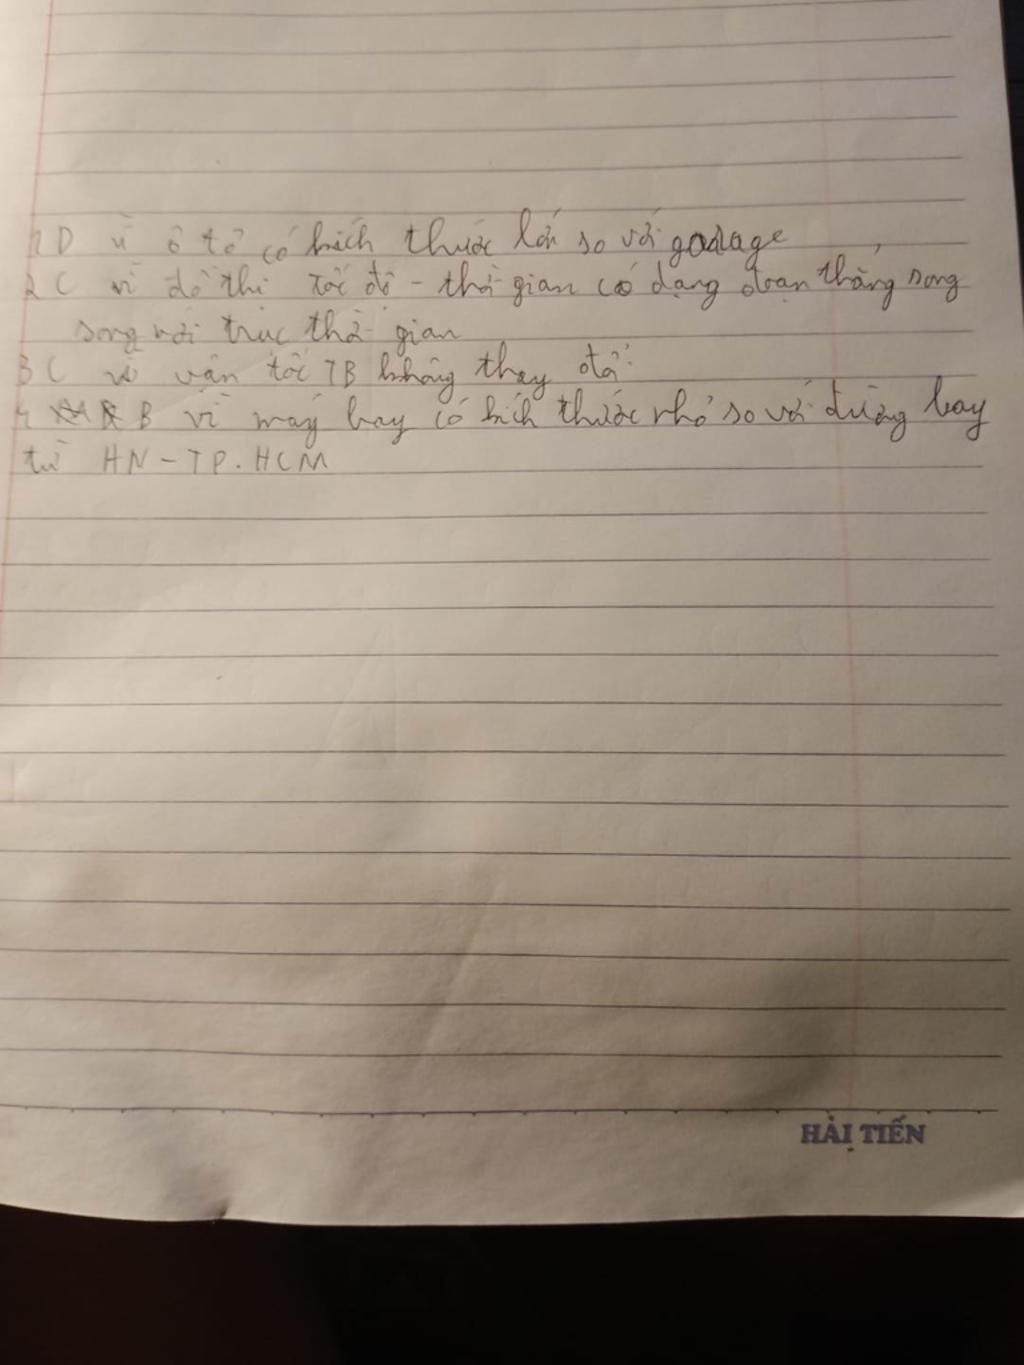 1 D vì ô tô có kích thước lớn so với godage
2 C vì đồ thị tốc độ - thời gian có dạng đoạn thẳng song
song với trục thời gian
3 C vì vận tốc TB không thay đổi
4 B vì máy bay có kích thước nhỏ so với đường bay
từ HN - TP. HCM
HẢI TIẾN